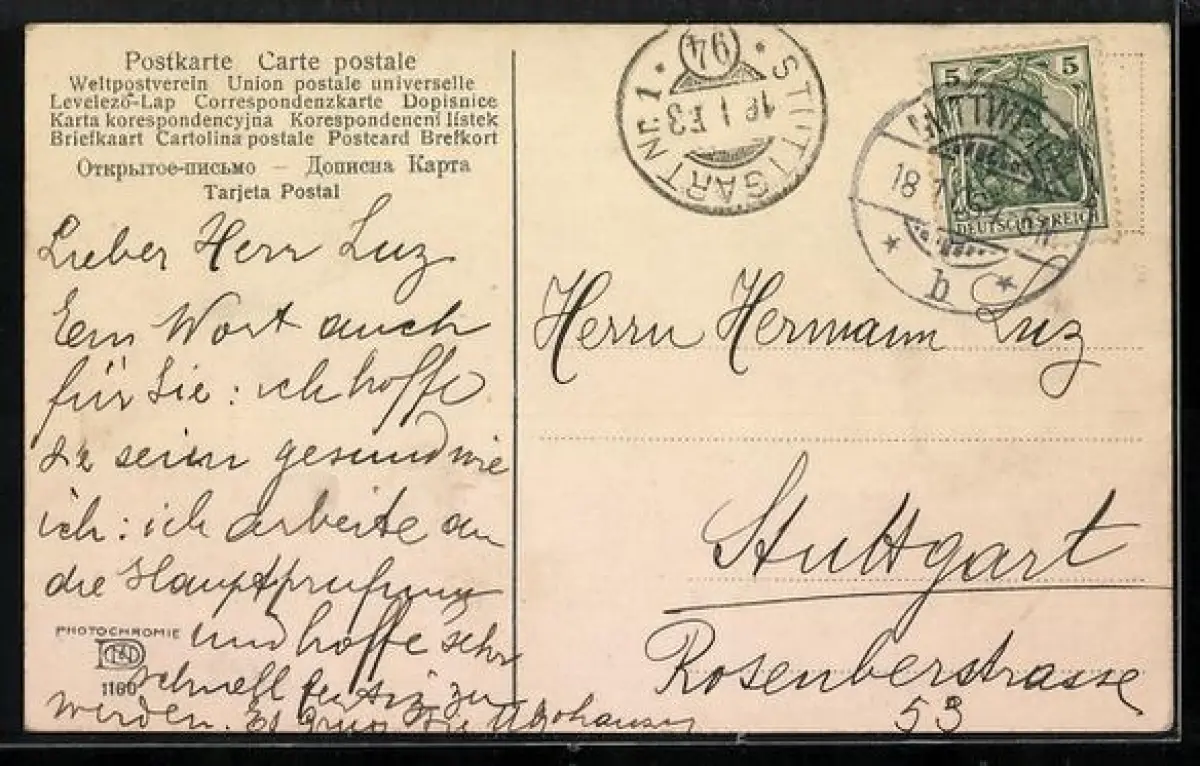 Postkarte Carte postale
Weltpostverein Union postale universelle
Levelező-Lap Correspondenzkarte Dopisnice
Karta korespondencyjna Korespondenční lístek
Briefkaart Cartolina postale Postcard Brefkort
Открытое-письмо — Дописна Карта
Tarjeta Postal
Lieber Herr Luz
Ein Wort auch
für Sie: ich hoffe
Sie seien gesund wie
ich: ich arbeite an
die Hauptprüfung
und hoffe sehr
schnell fertig zu
werden. Es Sie
PHOTOCHROMIE
1180
STUTTGART Nr. 1
94
5 5
DEUTSCHES REICH
18
b
Herrn Hermann Luz
Stuttgart
Rosenberstrasse
53